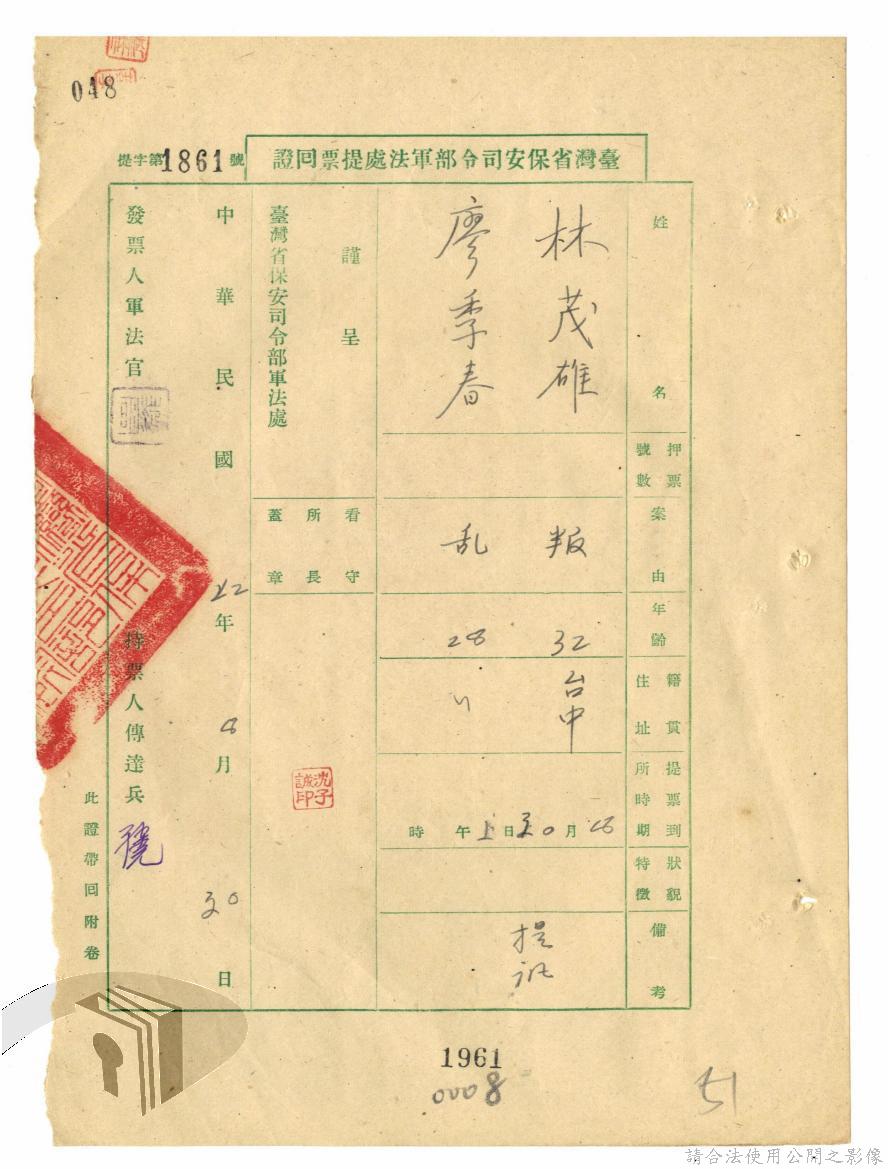 048
提字第1861號
臺灣省保安司令部軍法處提票回證
姓名
林茂雄
廖季春
押票號數
案由
叛乱
年齡
32
28
籍貫住址
台中
〃
提票到所時期
8月30日上午 時
狀貌特徵
備考
提訊
謹呈
臺灣省保安司令部軍法處
看守所長蓋章
沈子誠印
中華民國42年8月30日
發票人軍法官
持票人傳達兵
此證帶回附卷
1961
0008
51
請合法使用公開之影像